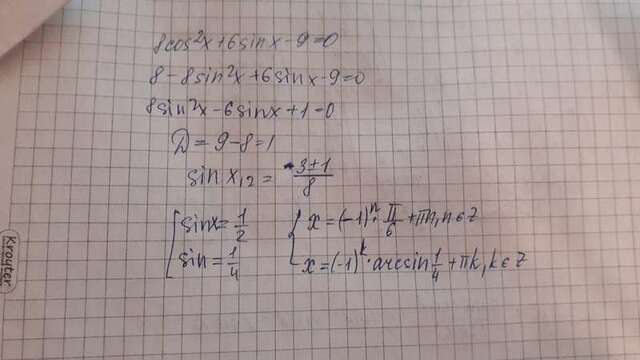 8cos²x+6sinx-9=0
8-8sin²x+6sinx-9=0
8sin²x-6sinx+1=0
D=9-8=1
sin x₁,₂ = (3±1)/8
[ sinx=1/2 { x=(-1)ⁿ·π/6+πn, n∈Z
[ sin=1/4 { x=(-1)ᵏ·arcsin 1/4+πk, k∈Z
Krayter